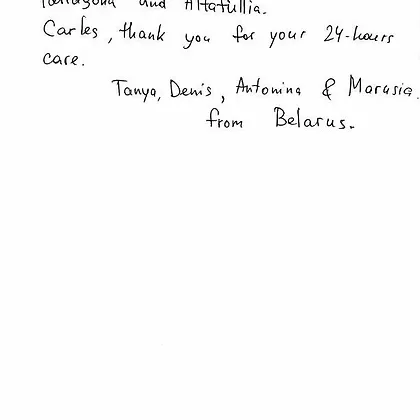 Tarragona and Altafullia.
Carles, thank you for your 24-hours
care.
Tanya, Denis, Antonina & Marusia.
from Belarus.